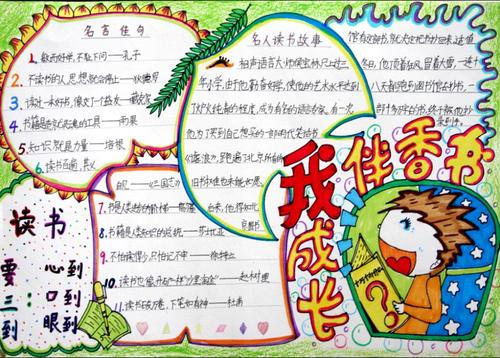 名言佳句
1. 敏而好学,不耻下问——孔子
2. 不读书的人,思想就会停止——狄德罗
3. 读过一本好书,像交了一个益友——臧克家
4. 书籍是改造灵魂的工具——雨果
5. 知识就是力量——培根
6. 读书百遍,其义
自见——《三国志》
7. 书是人类进步的阶梯——高尔基
8. 书籍是人类知识的总统——莎士比亚
9. 不怕读得少,只怕记不牢——徐特立
10. 读书也像开矿一样"沙里淘金"——赵树理
11. 读书破万卷,下笔如有神——杜甫
名人读书故事
相声语言大师侯宝林只上过三
年小学,由于他勤奋好学,使他的艺术水平达到
了炉火纯青的程度,成为有名的语言专家。有一次
他为了买到自己想买的一部明代笑话书
《谑浪》,跑遍了北京所有的
旧书摊也未能如愿。
后来,他得知北
京图书
馆有这部书,就决定把书抄回来。适值
冬日,他顶着狂风,冒着大雪,一连十
八天都跑到图书馆里去抄书,一
部十多万字的书,终于被他抄
录到手。
我
伴香书
成长
读书
要:心到
三:口到
到 眼到
十万个为什么
?